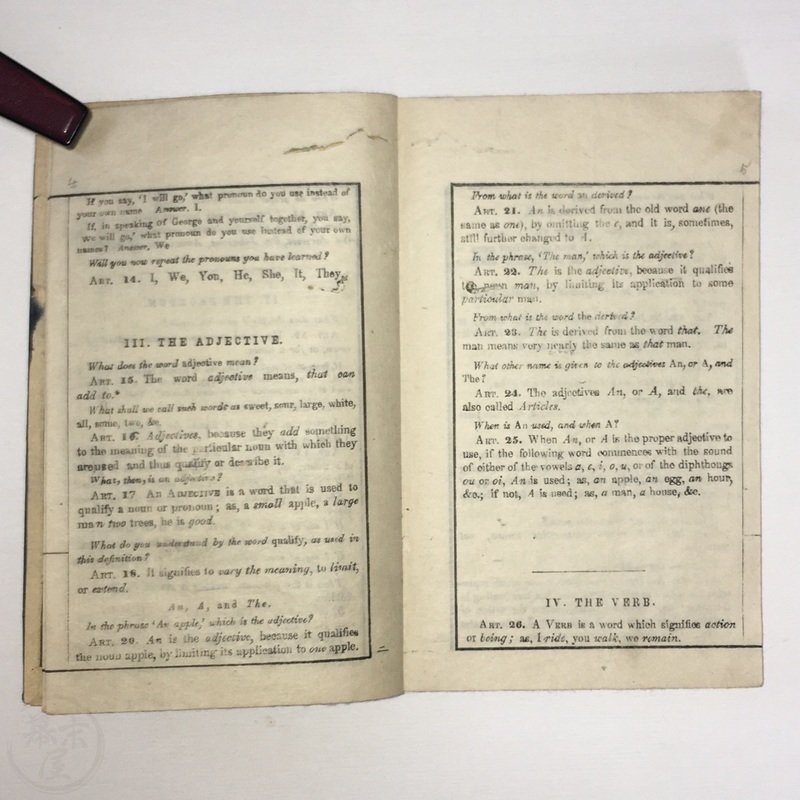 4
If you say, 'I will go,' what pronoun do you use instead of
your own name Answer. I.
If, in speaking of George and yourself together, you say,
we will go,' what pronoun do you use instead of your own
names? Answer, We
Will you now repeat the pronouns you have learned?
ART. 14. I, We, You, He, She, It, They
III. THE ADJECTIVE.
What does the word adjective mean?
ART. 15. The word adjective means, that can
add to.*
What shall we call such words as sweet, sour, large, white,
all, some, two, &c.
ART. 16. Adjectives, because they add something
to the meaning of the particular noun with which they
are used and thus qualify or describe it.
What, then, is an adjective?
ART. 17 AN ADJECTIVE is a word that is used to
qualify a noun or pronoun; as, a small apple, a large
man two trees, he is good.
What do you understand by the word qualify, as used in
this definition?
ART. 18. It signifies to vary the meaning, to limit,
or extend.
An, A, and The.
In the phrase 'An apple,' which is the adjective?
ART. 20. An is the adjective, because it qualifies
the noun apple, by limiting its application to one apple.
5
From what is the word an derived?
ART. 21. An is derived from the old word ane (the
same as one), by omitting the e, and it is, sometimes,
still further changed to A.
In the phrase, 'The man,' which is the adjective?
ART. 22. The is the adjective, because it qualifies
noun man, by limiting its application to some
particular man.
From what is the word the derived?
ART. 23. The is derived from the word that. The
man means very nearly the same as that man.
What other name is given to the adjectives An, or A, and
The?
ART. 24. The adjectives An, or A, and the, are
also called Articles.
When is An used, and when A?
ART. 25. When An, or A is the proper adjective to
use, if the following word commences with the sound
of either of the vowels a, e, i, o, u, or of the diphthongs
ou or oi, An is used; as, an apple, an egg, an hour,
&c.; if not, A is used; as, a man, a house, &c.
IV. THE VERB.
ART. 26. A VERB is a word which signifies action
or being; as, I ride, you walk, we remain.
幕末屋